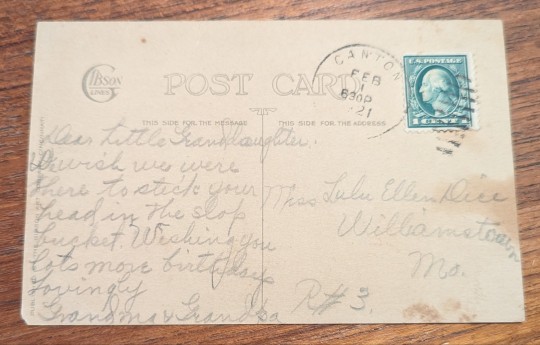 GIBSON
LINES
POST CARD
CANTON
FEB
1
830P
'21
U.S. POSTAGE
1 CENT 1
THIS SIDE FOR THE MESSAGE
THIS SIDE FOR THE ADDRESS.
Dear Little Granddaughter.
We wish we were
there to stick your
head in the slop
bucket. Wishing you
lots more birthdays
Lovingly
Grandma & Grandpa
Miss Lulu Ellen Dice
Williamstown
Mo.
R#3.